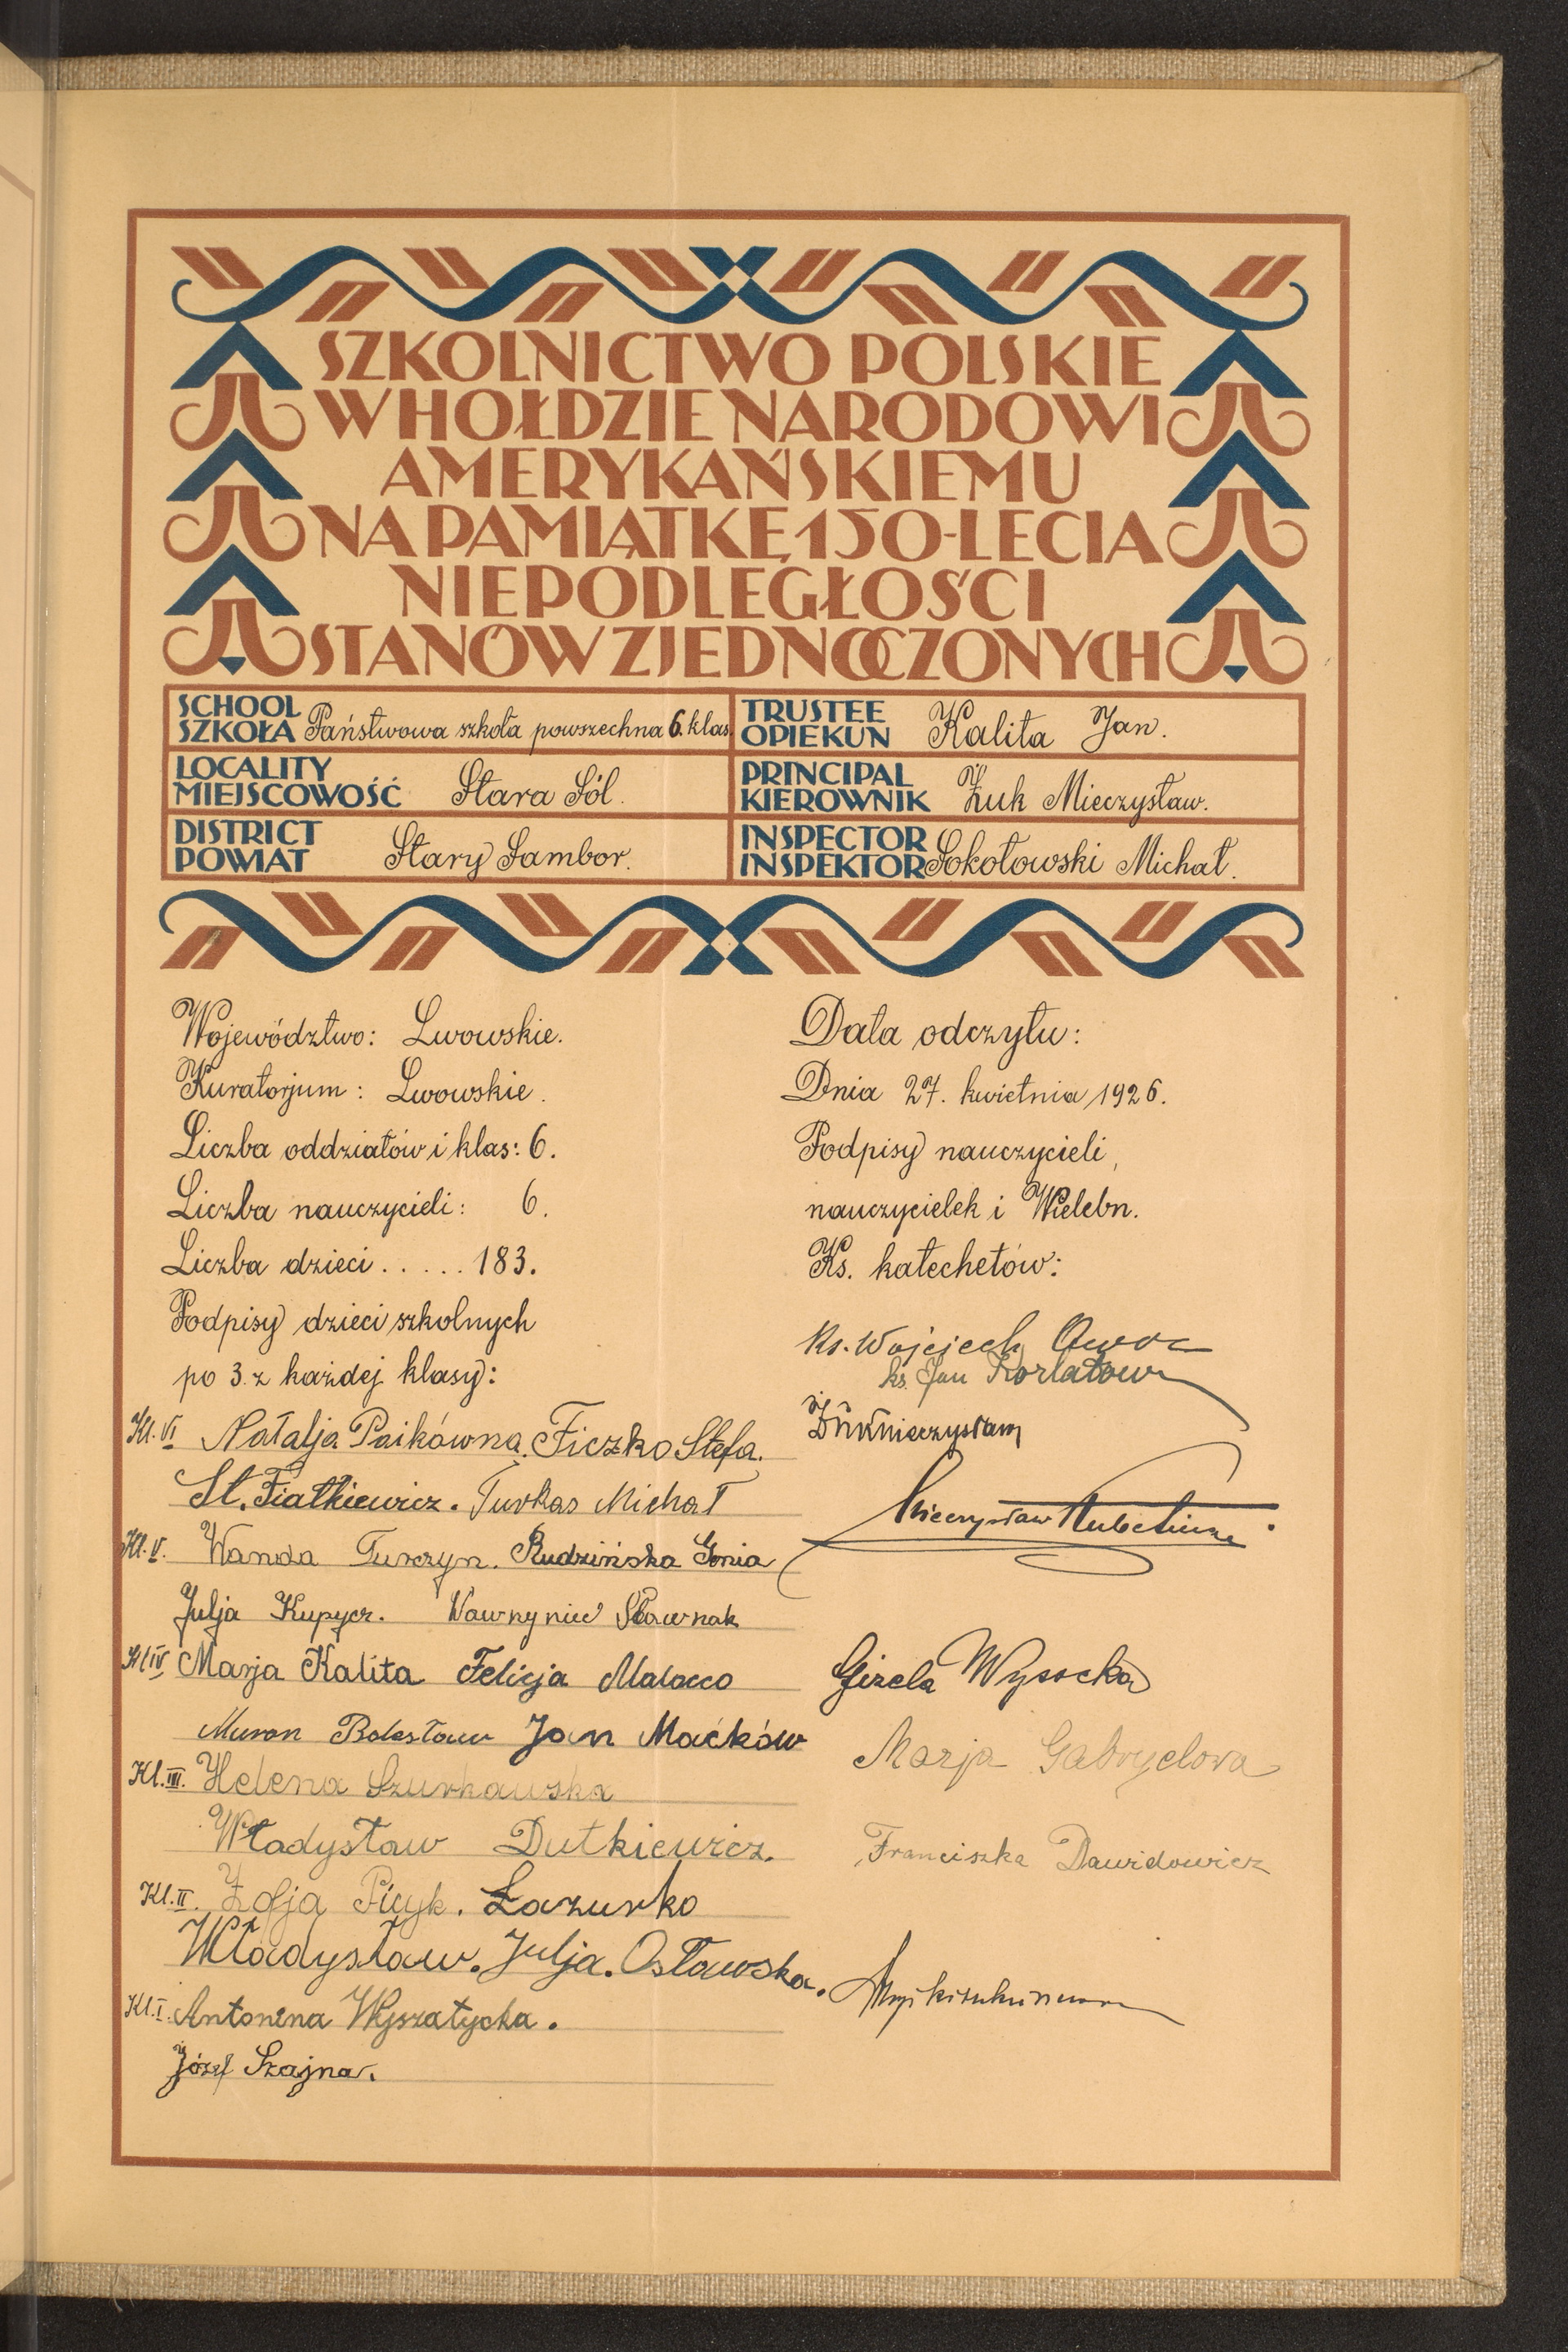 SZKOLNICTWO POLSKIE
W HOŁDZIE NARODOWI
AMERYKAŃSKIEMU
NA PAMIĄTKĘ 150-LECIA
NIEPODLEGŁOŚCI
STANÓW ZJEDNOCZONYCH
SCHOOL
SZKOŁA Państwowa szkoła powszechna 6. klas.
TRUSTEE
OPIEKUN Kalita Jan.
LOCALITY
MIEJSCOWOŚĆ Stara Sól.
PRINCIPAL
KIEROWNIK Żuk Mieczysław.
DISTRICT
POWIAT Stary Sambor.
INSPECTOR
INSPEKTOR Sokołowski Michał.
Województwo: Lwowskie.
Kuratorjum: Lwowskie.
Liczba oddziałów i klas: 6.
Liczba nauczycieli: 6.
Liczba dzieci ..... 183.
Podpisy dzieci szkolnych
po 3. z każdej klasy:
Kl. VI Natalja Paikówna. Ficzko Stefa.
St. Fiałkiewicz. Turkas Michał
Kl. V. Wanda Turczyn. Rudzińska Genia
Julja Kupycz. Wawrzyniec Sławnak
Kl IV Marja Kalita Felicja Malacco
Muron Bolesław Jan Maćków
Kl. III. Helena Szurkawska
Władysław Dutkiewicz.
Kl. II. Zofja Picyk. Łazurko
Władysław. Julja. Osławska.
Kl. I. Antonina Wyszatycka.
Józef Szajna.
Data odczytu:
Dnia 27. kwietnia 1926.
Podpisy nauczycieli,
nauczycielek i Wielebn.
Ks. katechetów:
Ks. Wojciech
ks. Jan
Żuk Mieczysław
Mieczysław
Gizela Wysocka
Marja Gabryelowa
Franciszka Dawidowicz